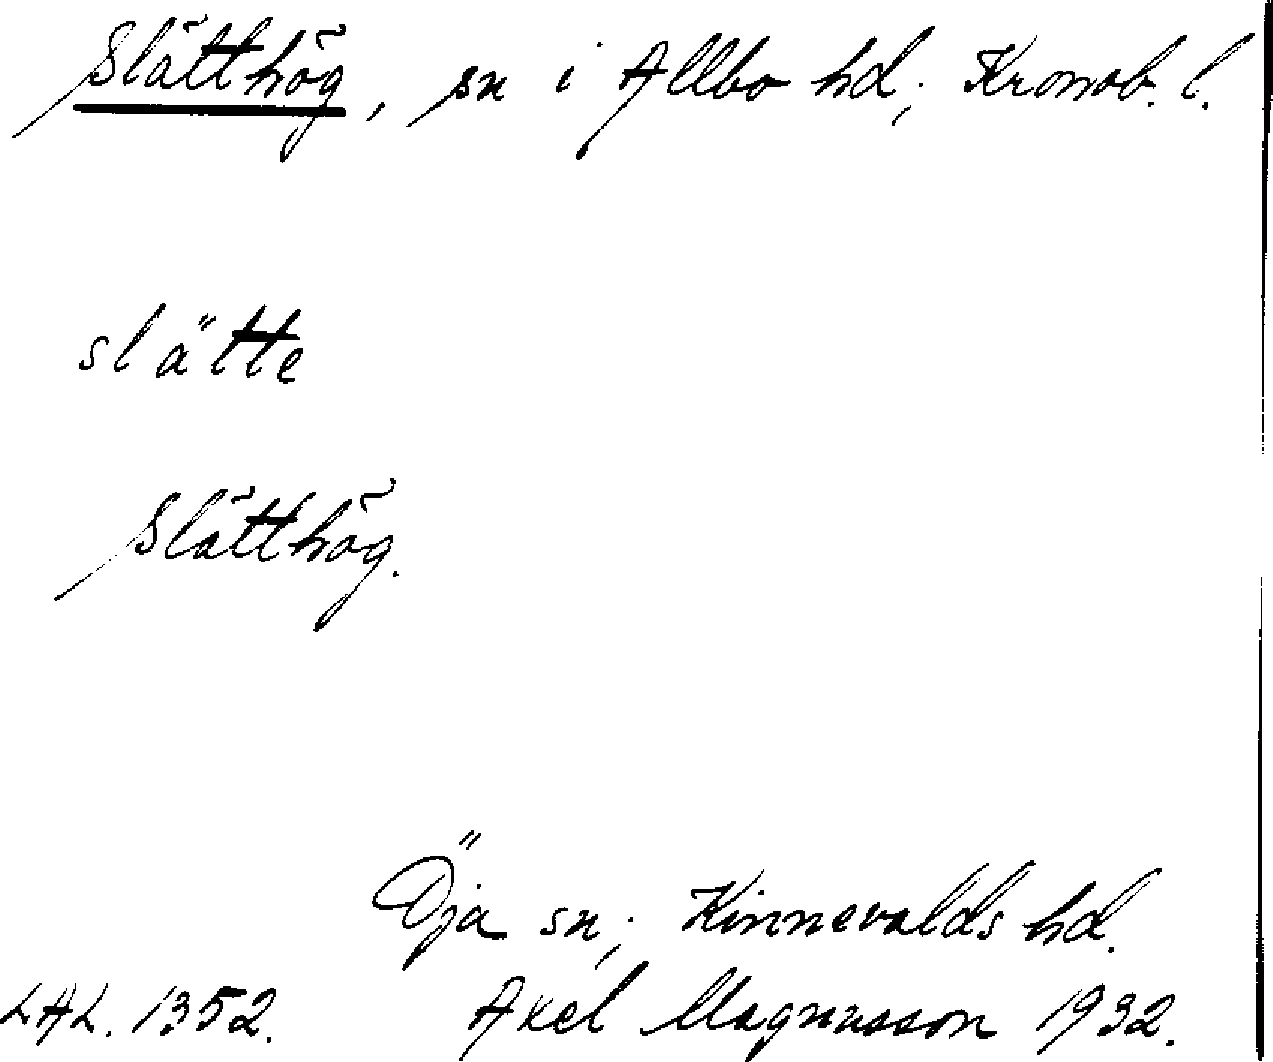 Slätthög, sn i Allbo hd; Kronob. l.
slätte
Slätthög.
Öja sn; Kinnevalds hd.
LAL. 1352. Axel Magnusson 1932.